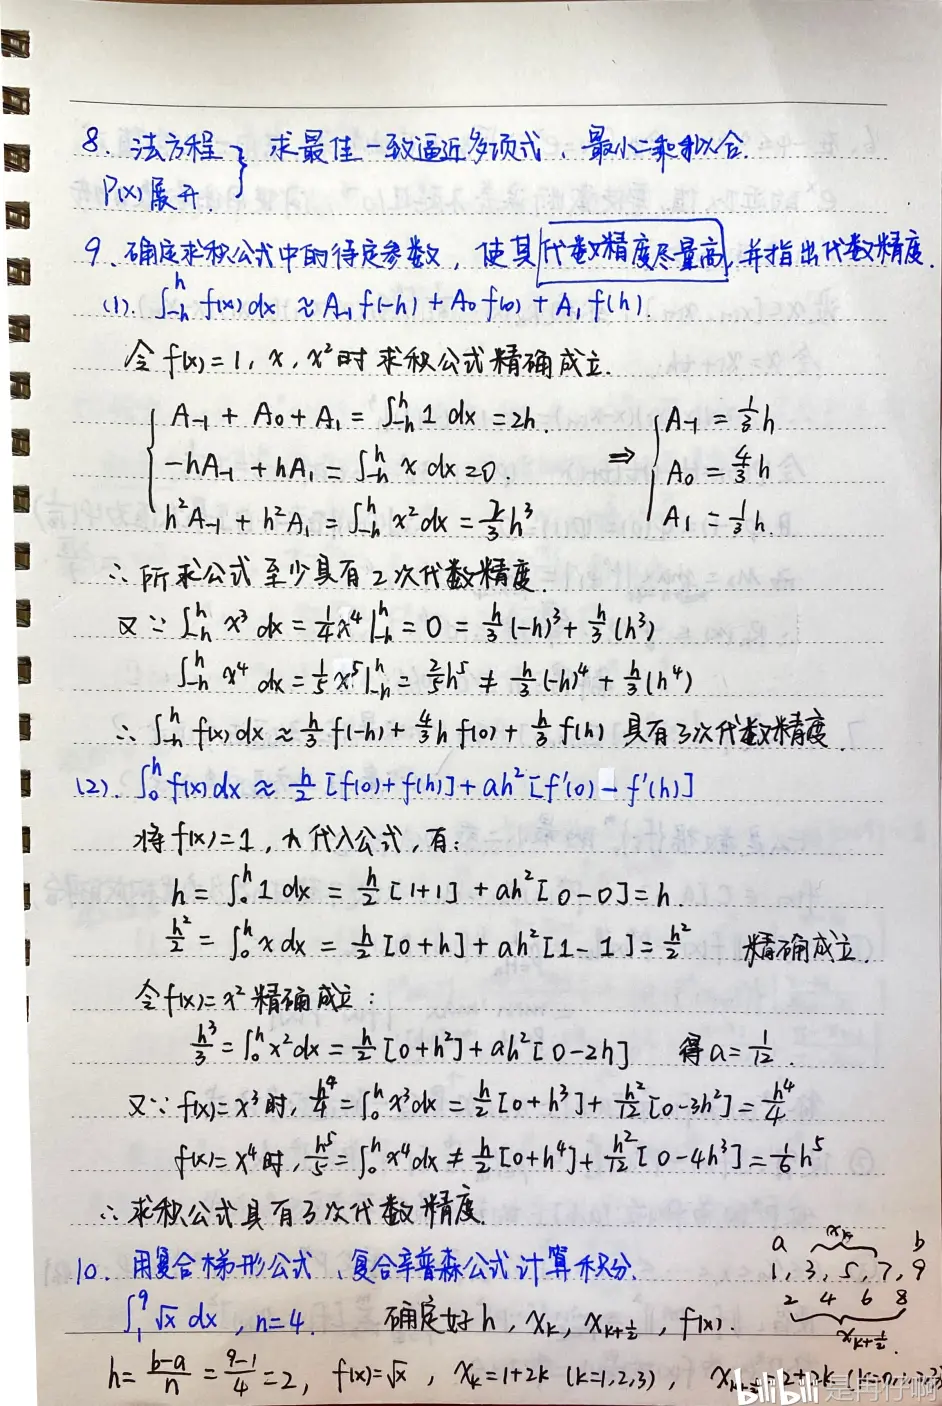 8. 法方程 } 求最佳一致逼近多项式、最小二乘拟合.
P(x)展开.
9. 确定求积公式中的待定参数, 使其代数精度尽量高, 并指出代数精度.
(1). ∫₋ₕʰ f(x) dx ≈ A₋₁ f(-h) + A₀ f(0) + A₁ f(h).
令 f(x) = 1, x, x² 时求积公式精确成立.
{ A₋₁ + A₀ + A₁ = ∫₋ₕʰ 1 dx = 2h. ⇒ { A₋₁ = 1/3 h
-hA₋₁ + hA₁ = ∫₋ₕʰ x dx = 0. A₀ = 4/3 h
h²A₋₁ + h²A₁ = ∫₋ₕʰ x² dx = 2/3 h³ A₁ = 1/3 h.
∴ 所求公式至少具有2次代数精度.
又∵ ∫₋ₕʰ x³ dx = 1/4 x⁴ |₋ₕʰ = 0 = h/3 (-h)³ + h/3 (h³)
∫₋ₕʰ x⁴ dx = 1/5 x⁵ |₋ₕʰ = 2/5 h⁵ ≠ h/3 (-h)⁴ + h/3 (h⁴)
∴ ∫₋ₕʰ f(x) dx ≈ h/3 f(-h) + 4/3 h f(0) + h/3 f(h) 具有3次代数精度.
(2). ∫₀ʰ f(x) dx ≈ h/2 [f(0) + f(h)] + ah² [f'(0) - f'(h)]
将 f(x) = 1, x 代入公式, 有:
h = ∫₀ʰ 1 dx = h/2 [1+1] + ah² [0-0] = h.
h²/2 = ∫₀ʰ x dx = h/2 [0+h] + ah² [1-1] = h²/2 精确成立.
令 f(x) = x² 精确成立:
h³/3 = ∫₀ʰ x² dx = h/2 [0+h²] + ah² [0-2h] 得 a = 1/12.
又∵ f(x) = x³ 时, h⁴/4 = ∫₀ʰ x³ dx = h/2 [0+h³] + h²/12 [0-3h²] = h⁴/4
f(x) = x⁴ 时, h⁵/5 = ∫₀ʰ x⁴ dx ≠ h/2 [0+h⁴] + h²/12 [0-4h³] = 1/6 h⁵
∴ 求积公式具有3次代数精度.
a xₖ b
10. 用复合梯形公式、复合辛普森公式计算积分. 1, 3, 5, 7, 9
2 4 6 8
∫₁⁹ √x dx, n=4. 确定好 h, xₖ, xₖ₊½, f(x). xₖ₊½.
h = (b-a)/n = (9-1)/4 = 2, f(x) = √x, xₖ = 1+2k (k=1,2,3),
bilibili 是冉仔啊